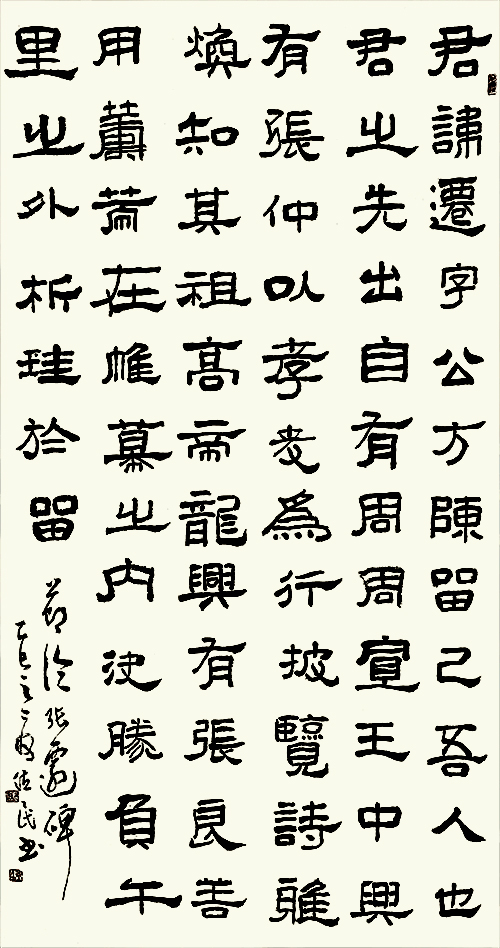 君諱遷字公方陳留己吾人也
君之先出自有周周宣王中興
有張仲以孝友為行披覽詩雅
煥知其祖高帝龍興有張良善
用籌策在帷幕之内決勝負千
里之外析珪於留
節临張遷碑
乙巳 民书